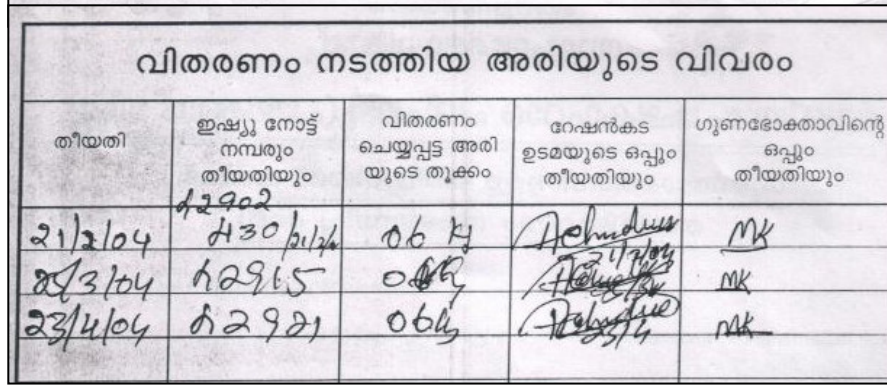 വിതരണം നടത്തിയ അരിയുടെ വിവരം
തീയതി
ഇഷ്യു നോട്ട്
നമ്പരും
തീയതിയും
വിതരണം
ചെയ്യപ്പട്ട അരി
യുടെ തൂക്കം
റേഷൻകട
ഉടമയുടെ ഒപ്പും
തീയതിയും
ഗുണഭോക്താവിന്റെ
ഒപ്പും
തീയതിയും
21/2/04 430 06 Kg MK
/3/04 2915 MK
23/4/04 2921 06 Kg 23/4 MK